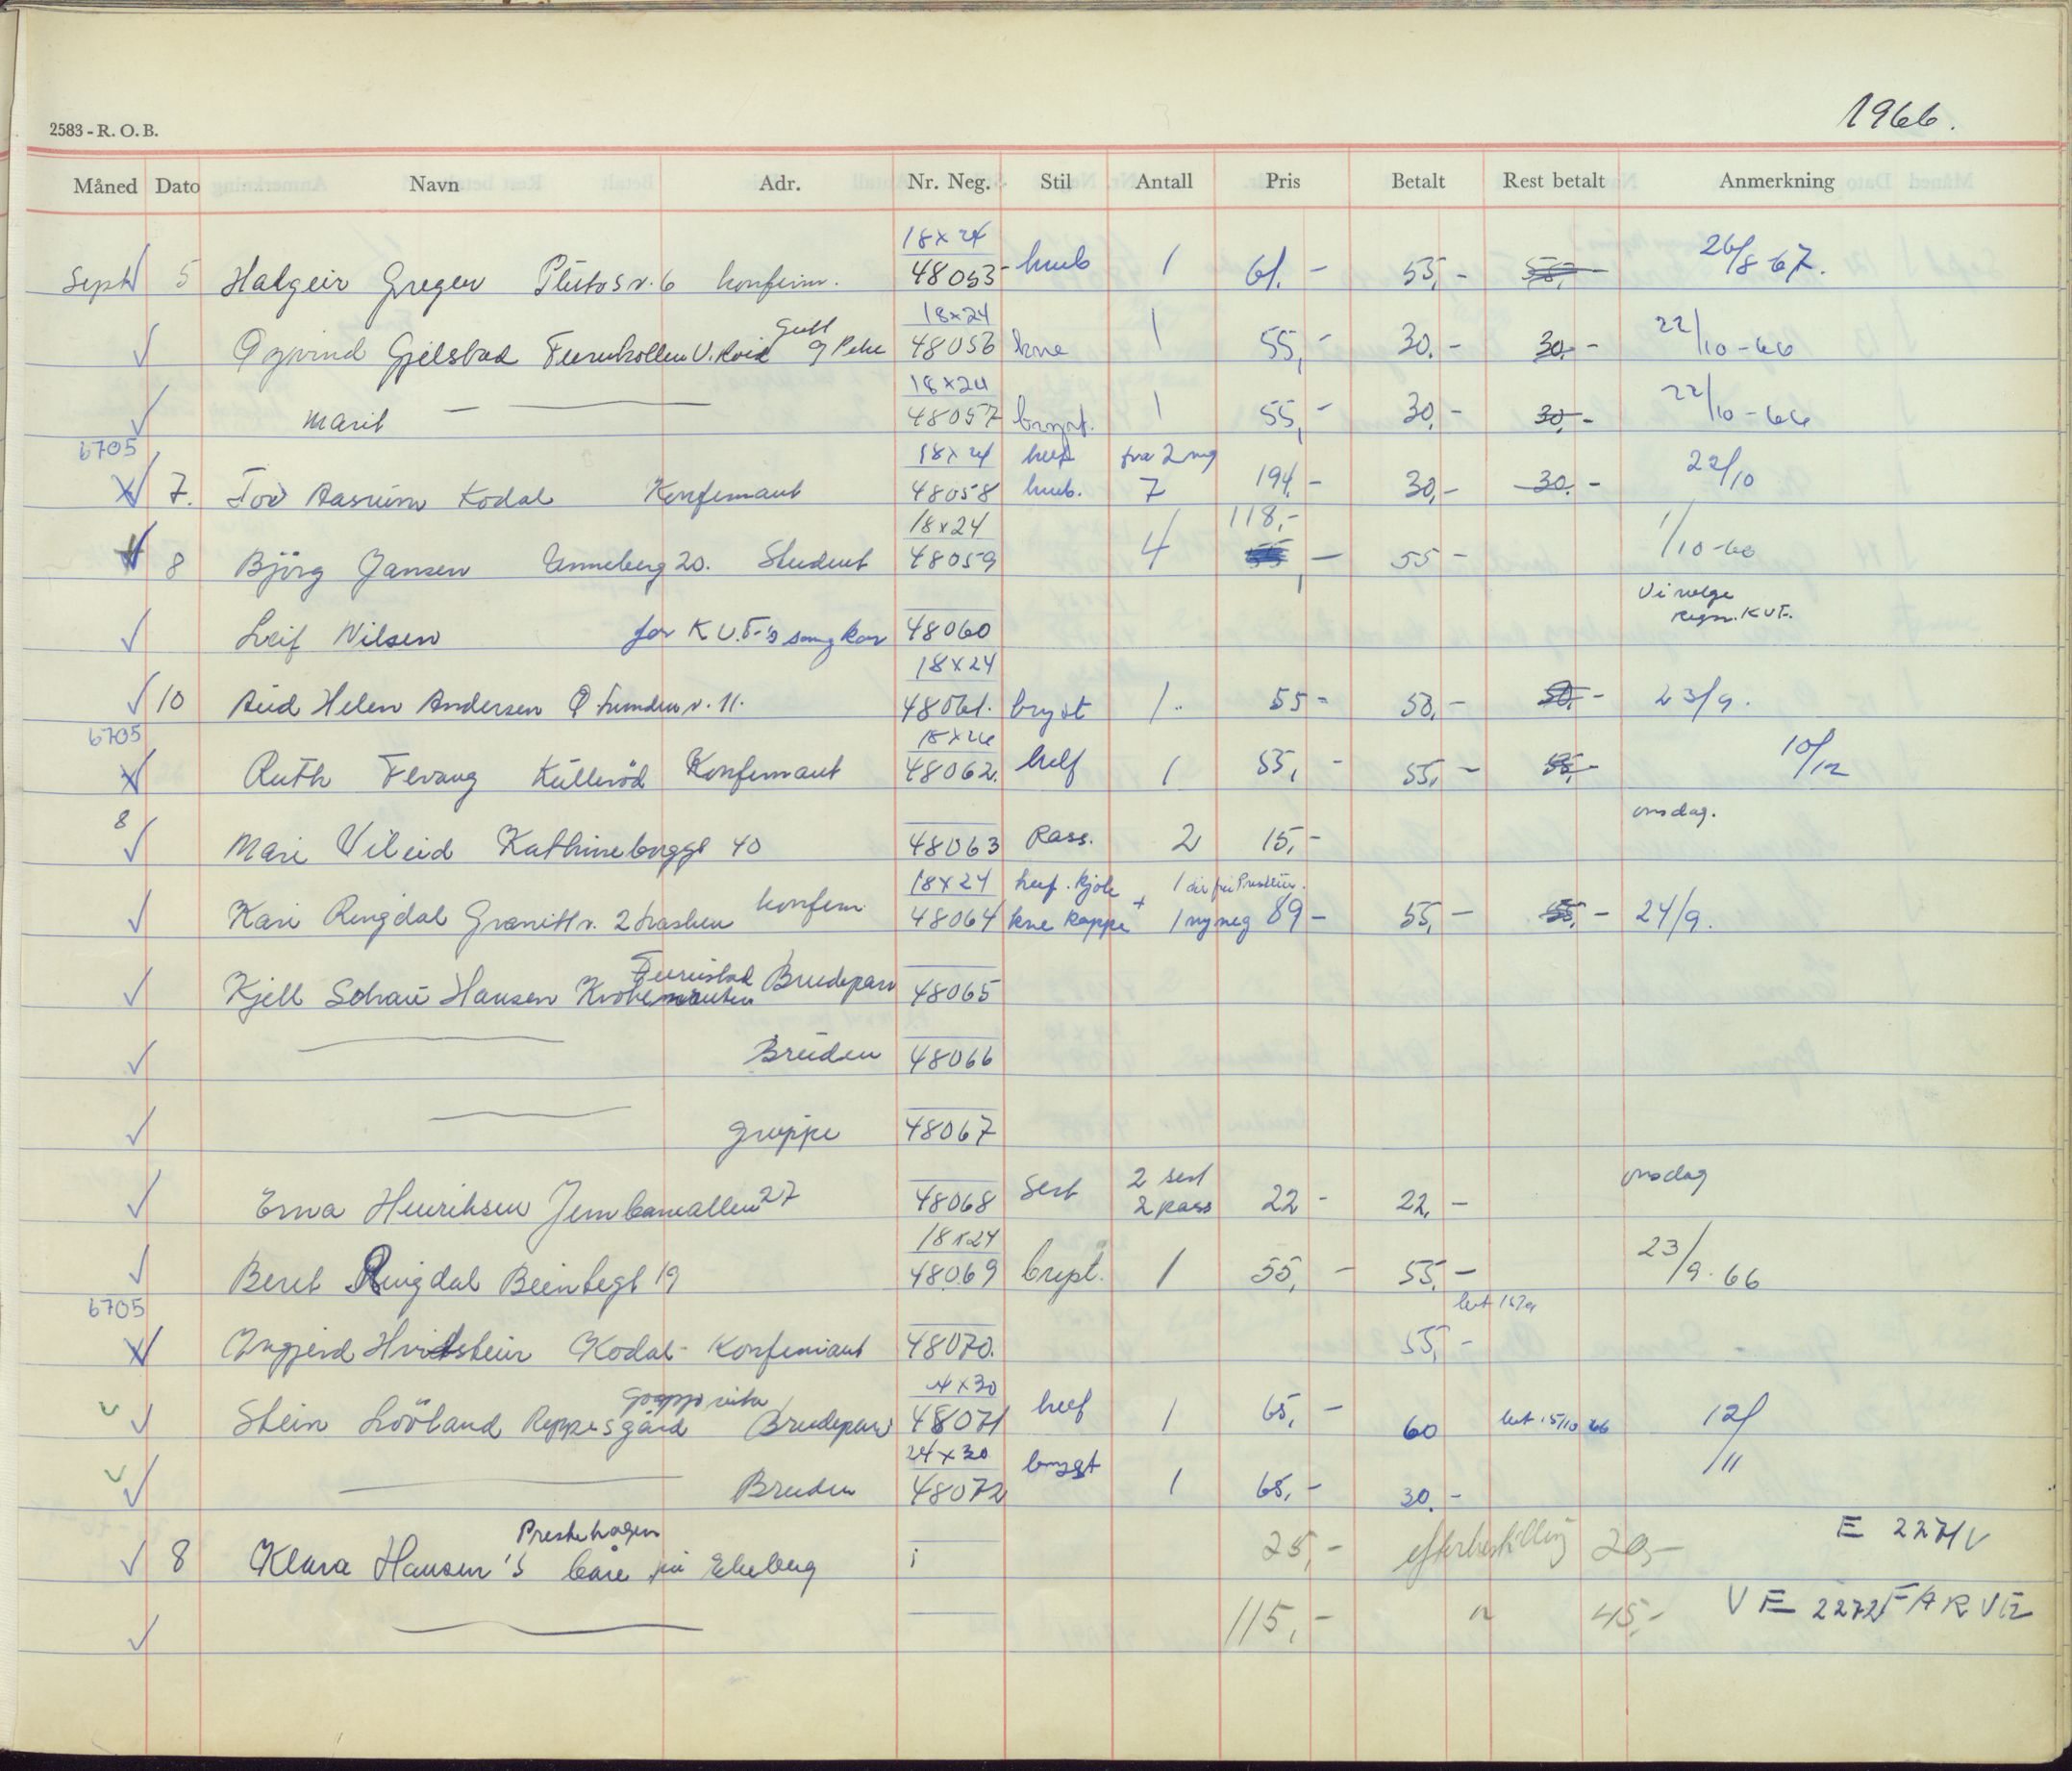 1966.
2583 - R. O. B.
Måned Dato Navn Adr. Nr. Neg. Stil Antall Pris Betalt Rest betalt Anmerkning
18x24
Sept 5 Halgeir Gregen Plutosv. 6 konfirm. 48053 1 61.- 55,- 26/8 67.
18x24
Gutt
Öyvind Gjelstad U. Kvid og Pike 48056 kne 1 55,- 30.- 30.- 22/10-66
18x24
Marit — 48057 bryst. 1 55,- 30,- 30,- 22/10-66
6705 18x24 helf fra 2 neg
7. Tov Aasrum Kodal Konfirmant 48058 7 194,- 30,- 30.- 22/10
18x24 118,-
8 Björg Jansen Anneberg 20. Student 48059 4 55 - 1/10-66
Vi velge
regn. KUF.
Leif Nilsen for K.U.F-'s sangkor 48060
18x24
10 Aud Helen Andersen v. 11. 48061. bryst 1. 55- 50,- 50,- 23/9.
6705 18x24
Ruth Flevang Kullerød Konfirmant 48062. helf 1 55,- 55,- 55,- 10/12
8 onsdag.
Mari Vileid Kathrineborggt 40 48063 Pass. 2 15,-
18x24 helf. kjole
Kari Ringdal Granittv. 2 konfirm. 48064 kne kappe + 1 ny neg 89- 55,- 55,- 24/9.
Furustad
Kjell Schau Hansen Brudepar 48065
— Bruden 48066
— gruppe 48067
2 sert onsdag
Erna Henriksen Jernbanealleen 27 48068 Sert 2 pass 22- 22,-
18x24
Berit Ringdal Beintegt 19 48069 bryst. 1 55,- 55,- 23/9.66
6705
Ingjerd Hvitstein Kodal- Konfirmant 48070. 55,-
24x30
Stein Lööland Reppesgård Brudepar 48071 helf 1 65,- 60 15/10 66 12/11
24x30
— Bruden 48072 bryst 1 65,- 30.-
Prestehagen E 2271 V
8 Klara Hansen's båre på Ekeberg 25,- efterbestilling 20,-
— 115,- " 45,- V E 2272 FARVE